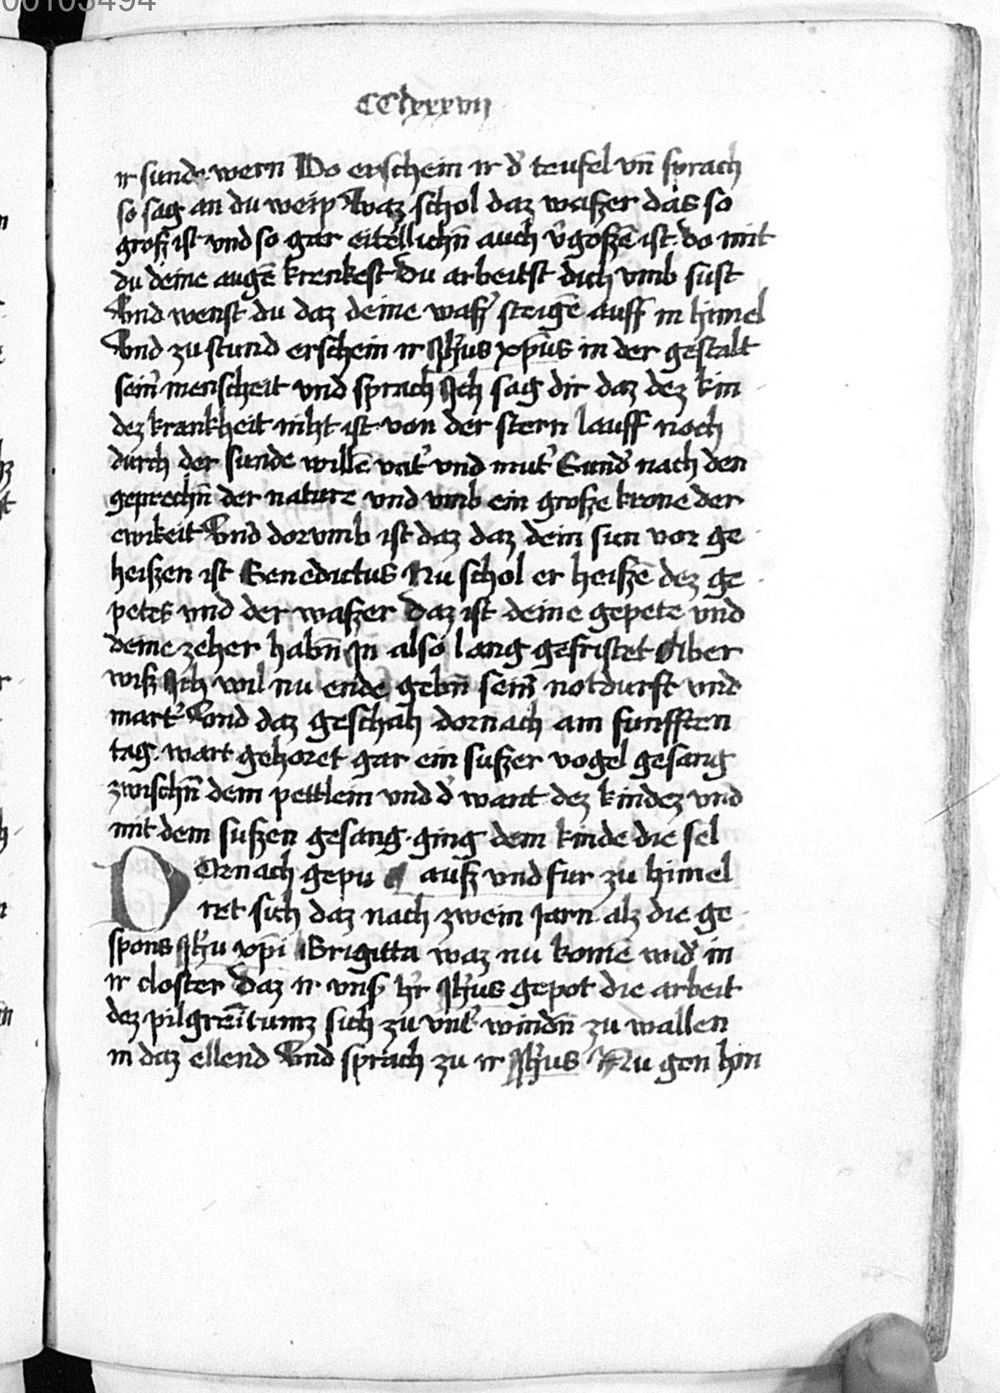 00103494
CClxxxvii
ir sunde wern Do erschein ir d' teufel vn̄ sprach
so sag an du weip Waz schol daz waszer daz so
grosz ist vnd so gar eitellichn̄ auch v'goszē ist do mit
du deine augē krenkest du arbeitst dich vmb sust
Vnd wenst du daz deine wasz' steigē auff in himel
Vnd zu stund erschein ir Jh'us xp̄us in der gestalt
sein' menscheit vnd sprach Ich sag dir daz dez kin
dez krankheit niht ist von der stern lauff noch
durch der sunde willē vat' vnd mut' Sund' nach den
geprechn̄ der nature vnd vmb ein grosze krone der
ewikeit Vnd dorvmb ist daz daz dein sun vor ge
heiszen ist Benedictus Nu schol er heiszē dez ge
petes vnd der waszer daz ist deine gepete vnd
deine zeher habn̄ in also lang gefristet Aber
wisz Ich wil nu ende gebn̄ sein' notdurft vnd
mart' Vnd daz geschah dornach am funfften
tag wart gehoret gar ein suszer vogel gesang
zwischn̄ dem pettlein vnd d' want dez kindez vnd
mit dem suszen gesang ging dem kinde die sel
DOrnach gepu ausz vnd fur zu himel
ret sich daz nach zwein jarn alz die ge
spons Jh'u xp̄i Brigitta waz nu komē wid' in
ir closter Daz ir vns' h'r Jh'us gepot die arbeit
dez pilgreī tumz sich zu vnt' windn̄ zu wallen
in daz ellend Vnd sprach zu ir Jh'us Nu gen hin